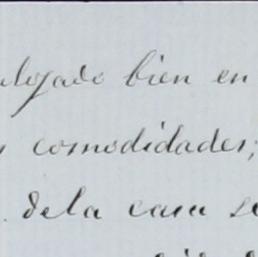 alojado bien en
comodidades;
dela casa se